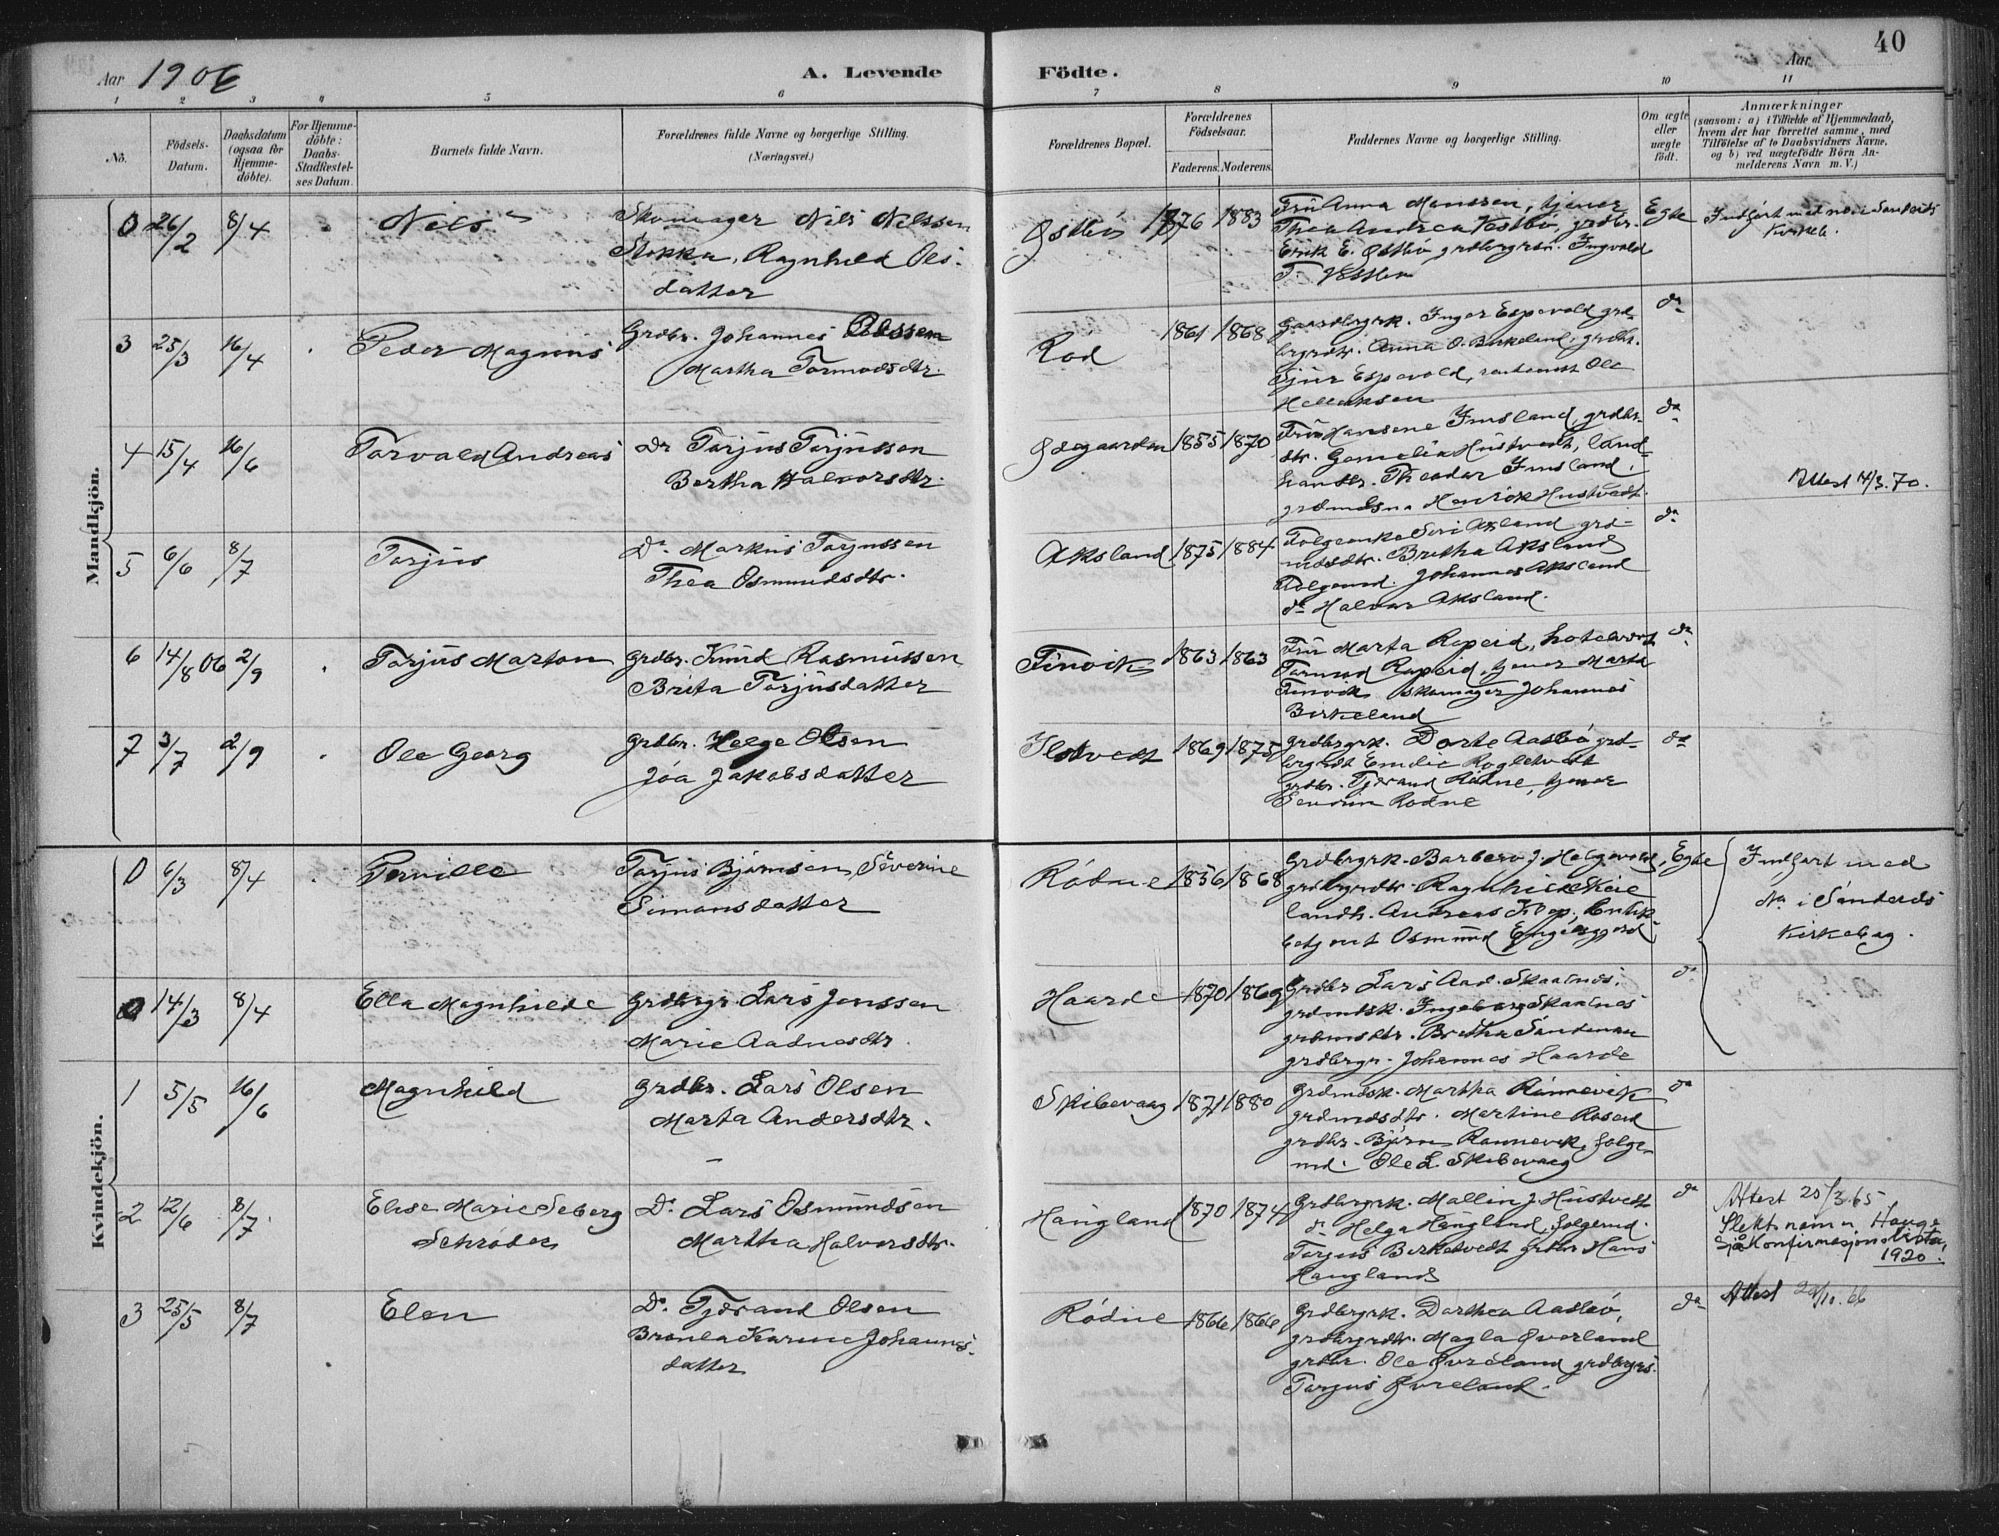 40
Aar 1906 A. Levende Födte. Aar
1 2 3 4 5 6 7 8 9 10 11
No.
Födsels-Datum.
Daabsdatum (ogsaa for Hjemme-döbte).
For Hjemme-döbte: Daabs-Stadfæstel-ses Datum.
Barnets fulde Navn.
Forældrenes fulde Navne og borgerlige Stilling.
(Næringsvei.)
Forældrenes Bopæl.
Forældrenes Födselsaar.
Faderens. Moderens.
Faddernes Navne og borgerlige Stilling.
Om ægte eller uægte födt.
Anmærkninger
(saasom: a) i Tilfælde af Hjemmedaab,
hvem der har forrettet samme, med
Tilföielse af to Daabsvidners Navne,
og b) ved uægtefödte Börn An-
melderens Navn m. V.)
Mandkjön.
0 26/2 8/4 Nils
Skomager Nils Nilssen
Stokka, Ragnhild Ols-
datter
Østbø 1876 1883
Fru Anna Monssen, tjener
Thea Andrea Vestbø, grdbr.
Erik E. Østbø, Ingvald
T. Vestbø
Egte
Indført med no i Sandeids
Kirkeb.
3 25/3 16/4 Peder Magnus
Grdbr. Johannes
Martha Tormodsdtr.
Rød 1861 1868
Gaardbgrk. Inger Espevold grd-
bergrdtr. Anna O. Birkeland, grdbr.
Sjur Espevold, Ole
do
4 15/4 16/6 Torvald Andreas
Do Torjus Torjussen
Bertha Halvorsdtr.
Ødegaarden 1855 1870
Fru Hansene Imsland, grdbr-
dtr. Gomelia Hustvedt, land-
handlr. Theodor Imsland,
grdmdsn Henrik Hustvedt.
do
Attest 4/3.70.
5 6/6 8/7 Torjus
Do. Markus Torjussen
Thea Osmundsdtr.
Aksland 1875 1884
Folgekone Siri Aksland grd-
mdsdtr. Britha Aksland
Folgemd. Johannes Aksland
do Halvor Aksland.
do
6 14/8 06 2/9 Torjus Marton
grdbr. Knud Rasmussen
Brita Torjusdatter
Tinvik 1863 1863
Fru Marta Ropeid, hotelvert
Tormod Ropeid, tjener Marta
Tinvik skomager Johannes
Birkeland
do
7 3/7 2/9 Ole Georg
grdbr. Helge Olsen
Joa Jakobsdatter
Ilstvedt 1869 1875
grdbrgrk. Dorte Aasbø grd-
grdbr. Tjerand Rødne, tjener
Severin Rødne
do
Kvindekjön.
0 6/3 8/4 Pernille
Torjus Bjørnsen, Severine
Simonsdatter
Rødne 1856 1868
Grdbrgrk. Barbero J. Helgevold,
grdbrgrdtr. Ragnhild Skeie
landh. Andreas Klep, butik-
betjent Osmund
Egte
Indført med
No i Sanderds
Kirkebog.
0 14/3 8/4 Ella Magnhilde
Grdbrgr. Lars Jonssen
Marie Aadnesdtr.
Haarde 1870 1869
Grdbr Lars Aad. Skaalnes,
grdmdsk. Ingeborg Skaalnes
grdmsdtr. Britha Sandeman
grdbrgr. Johannes Haarde
do
1 5/5 16/6 Magnhild
Grdbr. Lars Olsen
Marta Andersdtr.
Skibevaag 1871 1880
Grdmdsk. Martha Rønnevik
grdmdsdtr. Martine Roseid
grdbr. Bjørn Rønnevik, folge-
md. Ole L. Skibevaag
do
2 12/6 8/7 Elise Marie Seberg
Schrøder
Do. Lars Osmundsen
Martha Halvorsdtr.
Haugland 1870 1874
Grdbrgrk. Mallin J. Hustvedt
do Helga Haugland, folgemd.
Torjus Birketvedt grdbr Hans
Haugland
do
Attest 25/3.65
Slektsnamn Hauge
Sjå Konfirmasjonslista,
1920.
3 25/5 8/7 Elen
Do. Tjerand Olsen
Bronla Karine Johannes-
datter
Rødne 1866 1866
Grdbrgrk. Dorthea Aasbø,
grdbrgrdtr. Magla Øverland
grdbr. Ole Øvreland grdbrgrs.
Torjus Øvreland.
do
Attest 20/10.66